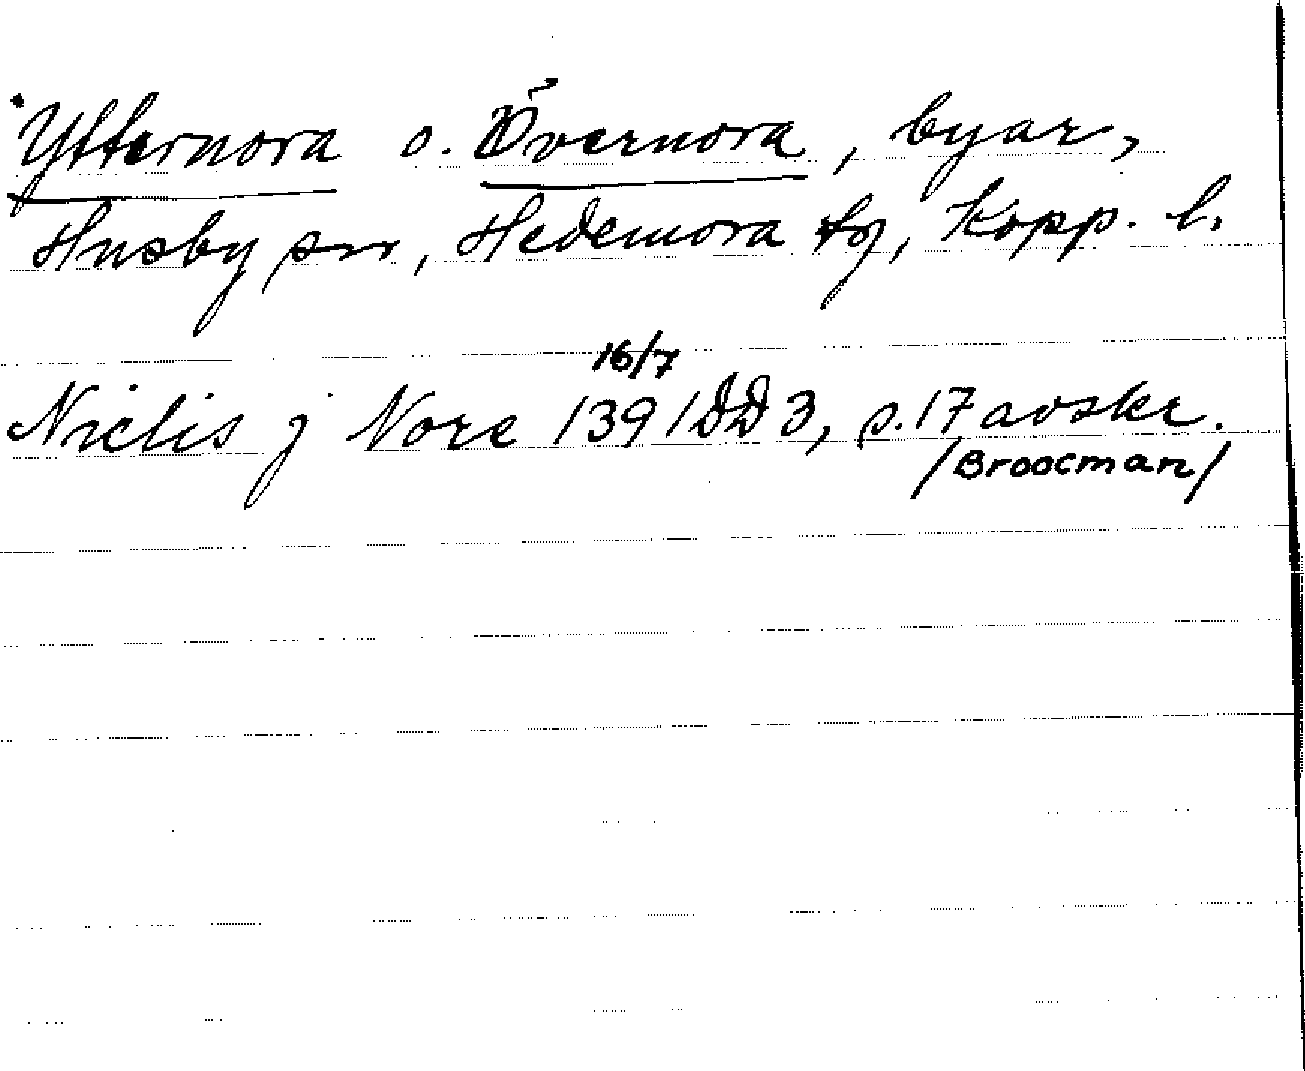 Ytternora o. Övernora, byar,
Husby sn, Hedemora tg, Kopp. l.
16/7
Niclis j Nore 1391 DD 3, s. 17 avskr.
/Broocman/